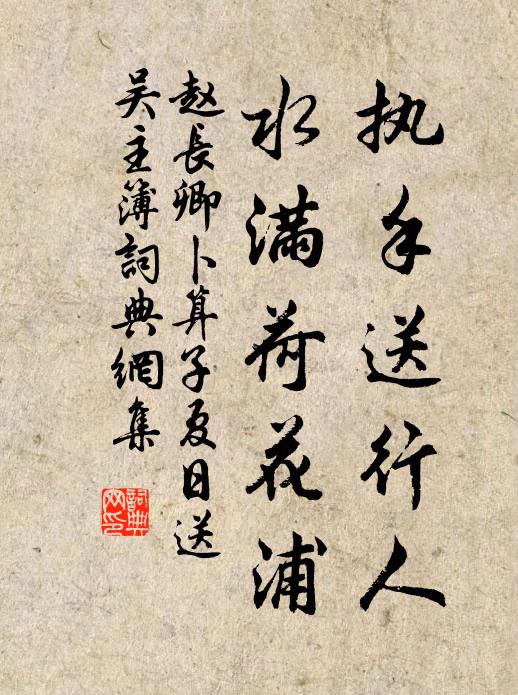 执手送行人
水满荷花浦
赵長卿卜算子夏日送
吴主簿詞典網集
詞典
网印